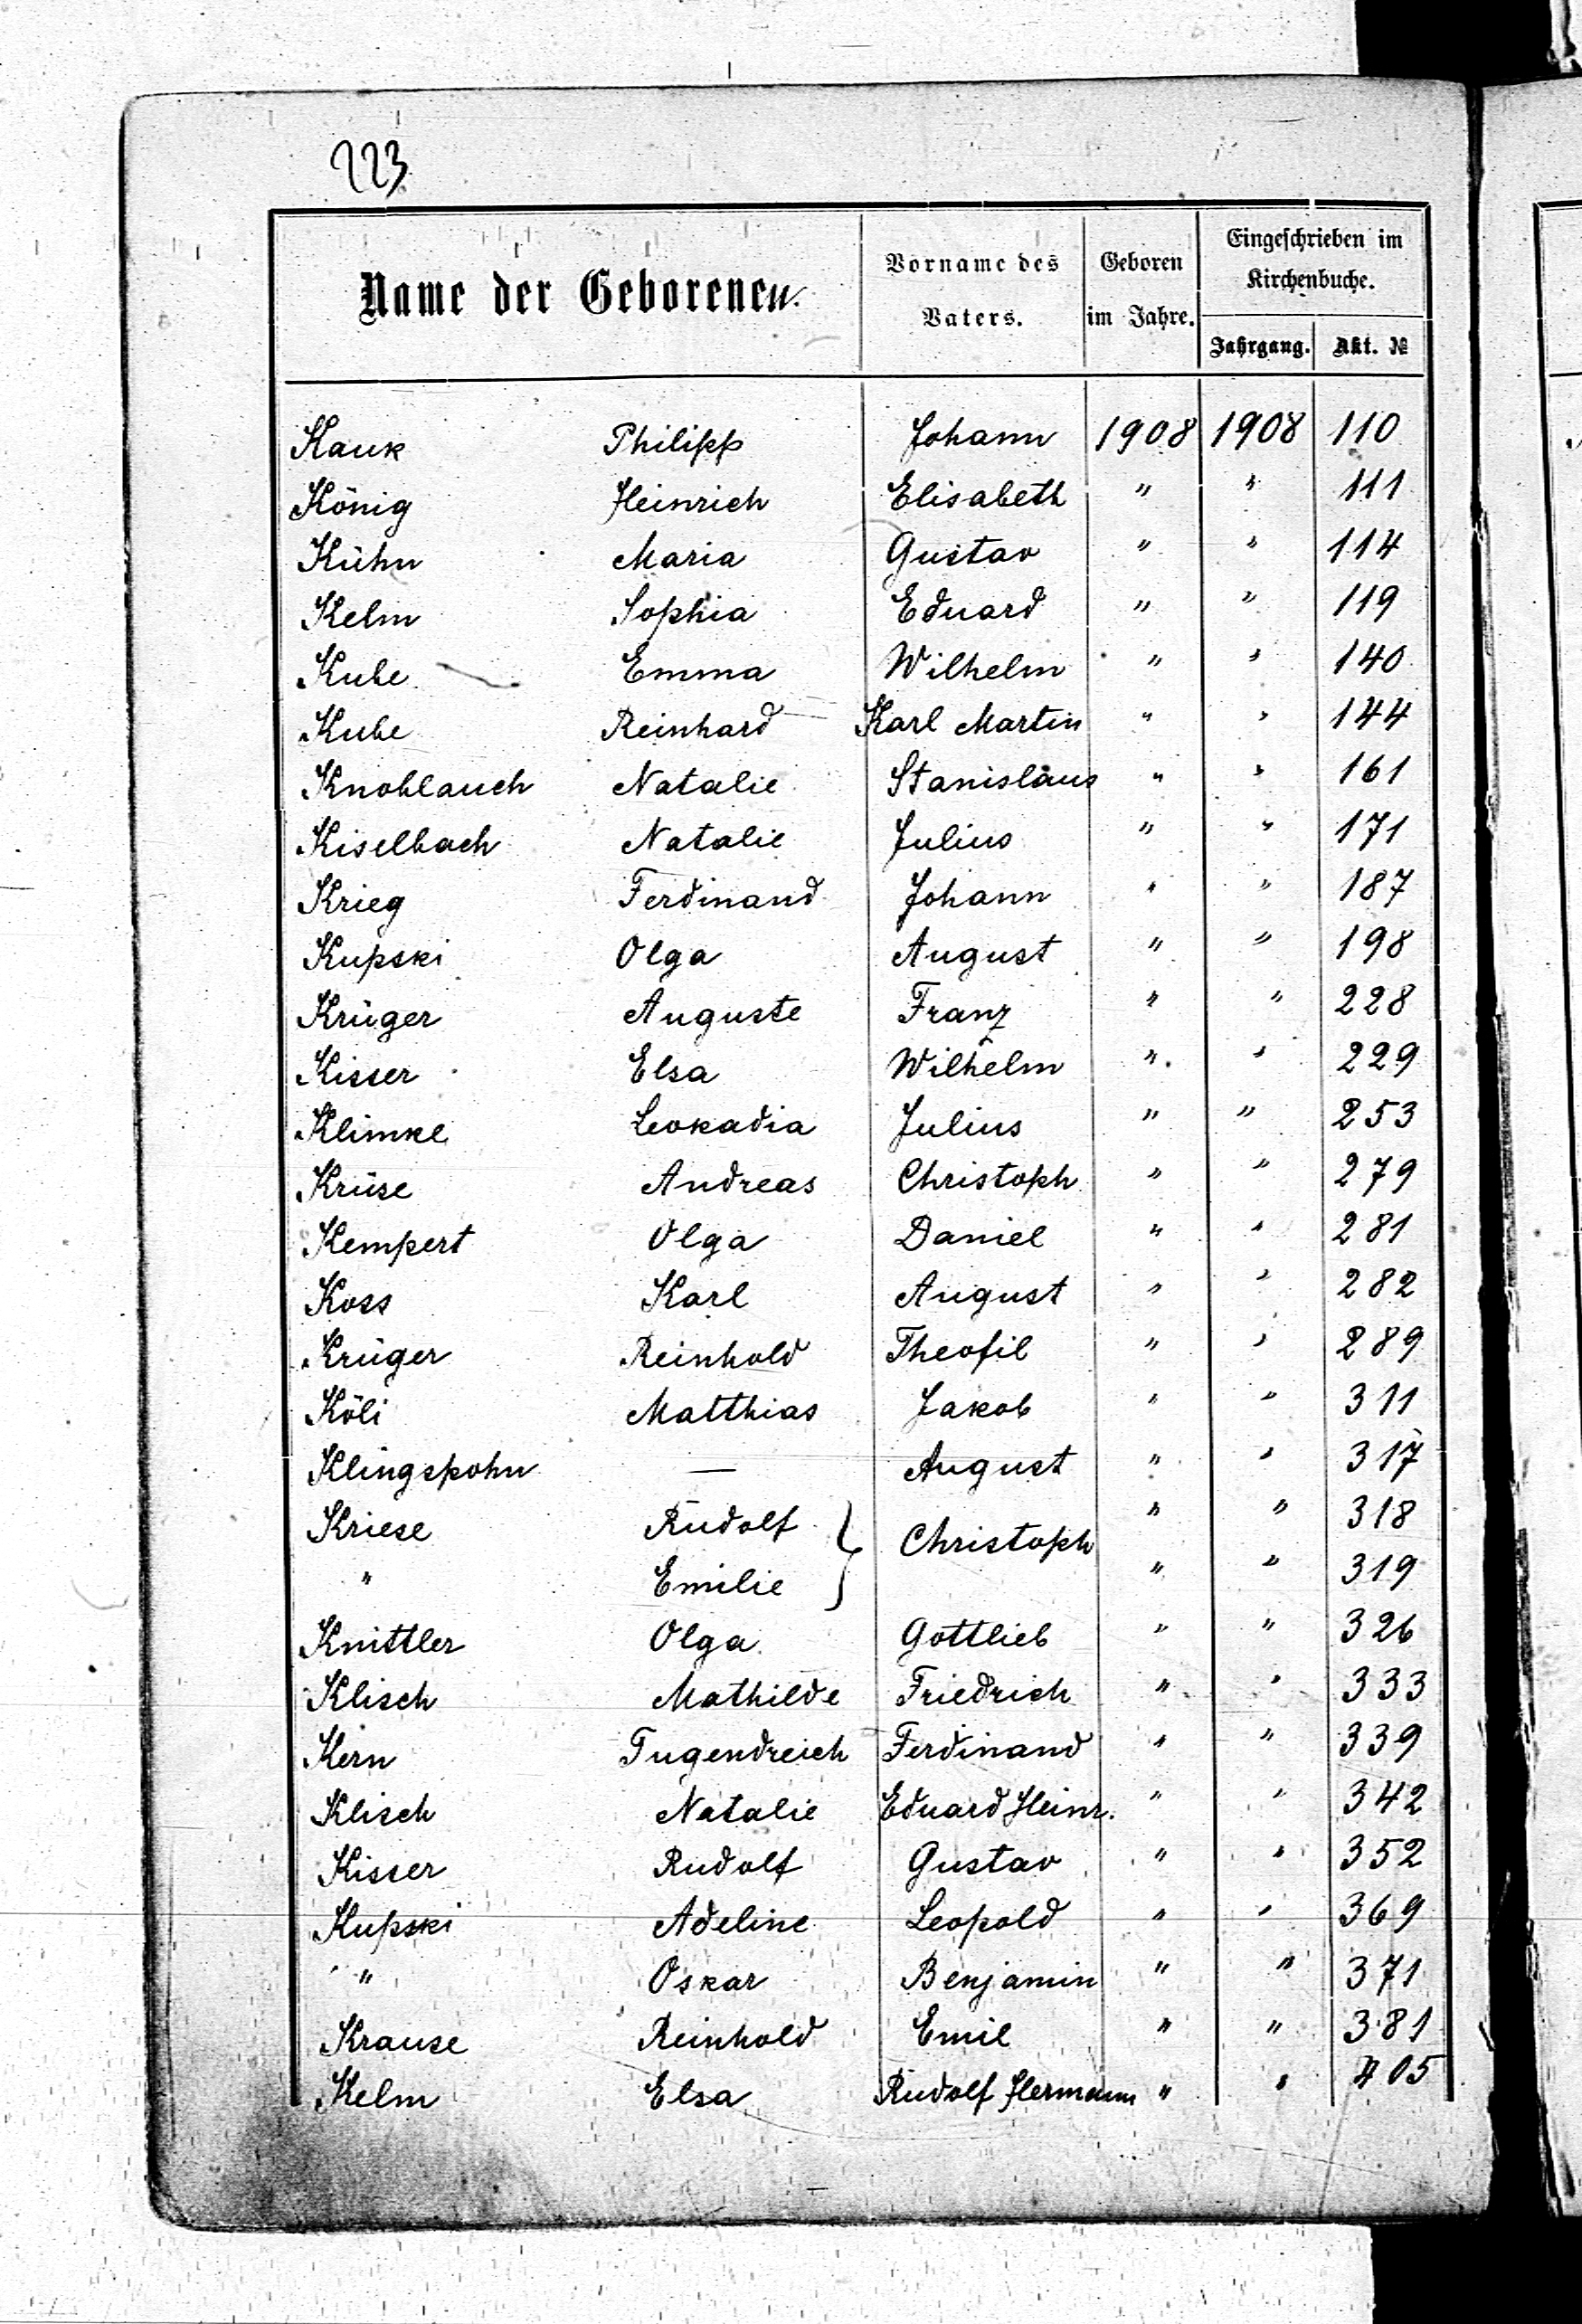 223
Name der Geborenen.
Vorname des Vaters.
Geboren im Jahre.
Eingeschrieben im Kirchenbuche.
Jahrgang. Akt. №
Kauk Philipp Johann 1908 1908 110
König Heinrich Elisabeth " " 111
Kühn Maria Gustav " " 114
Kelm Sophia Eduard " " 119
Kube Emma Wilhelm " " 140
Kube Reinhard Karl Martin " " 144
Knoblauch Natalie Stanislaus " " 161
Kiselbach Natalie Julius " " 171
Krieg Ferdinand Johann " " 187
Kupski Olga August " " 198
Krüger Auguste Franz " " 228
Kisser Elsa Wilhelm " " 229
Klimke Leokadia Julius " " 253
Krüse Andreas Christoph " " 279
Kempert Olga Daniel " " 281
Koss Karl August " " 282
Krüger Reinhold Theofil " " 289
Köli Matthias Jakob " " 311
Klingspohn — August " " 317
Kriese Rudolf } Christoph " " 318
" Emilie " " 319
Knittler Olga Gottlieb " " 326
Klisch Mathilde Friedrich " " 333
Kern Tugendreich Ferdinand " " 339
Klisch Natalie Eduard Heinr. " " 342
Kisser Rudolf Gustav " " 352
Kupski Adeline Leopold " " 369
" Oskar Benjamin " " 371
Krause Reinhold Emil " " 381
Kelm Elsa Rudolf Hermann " " 405